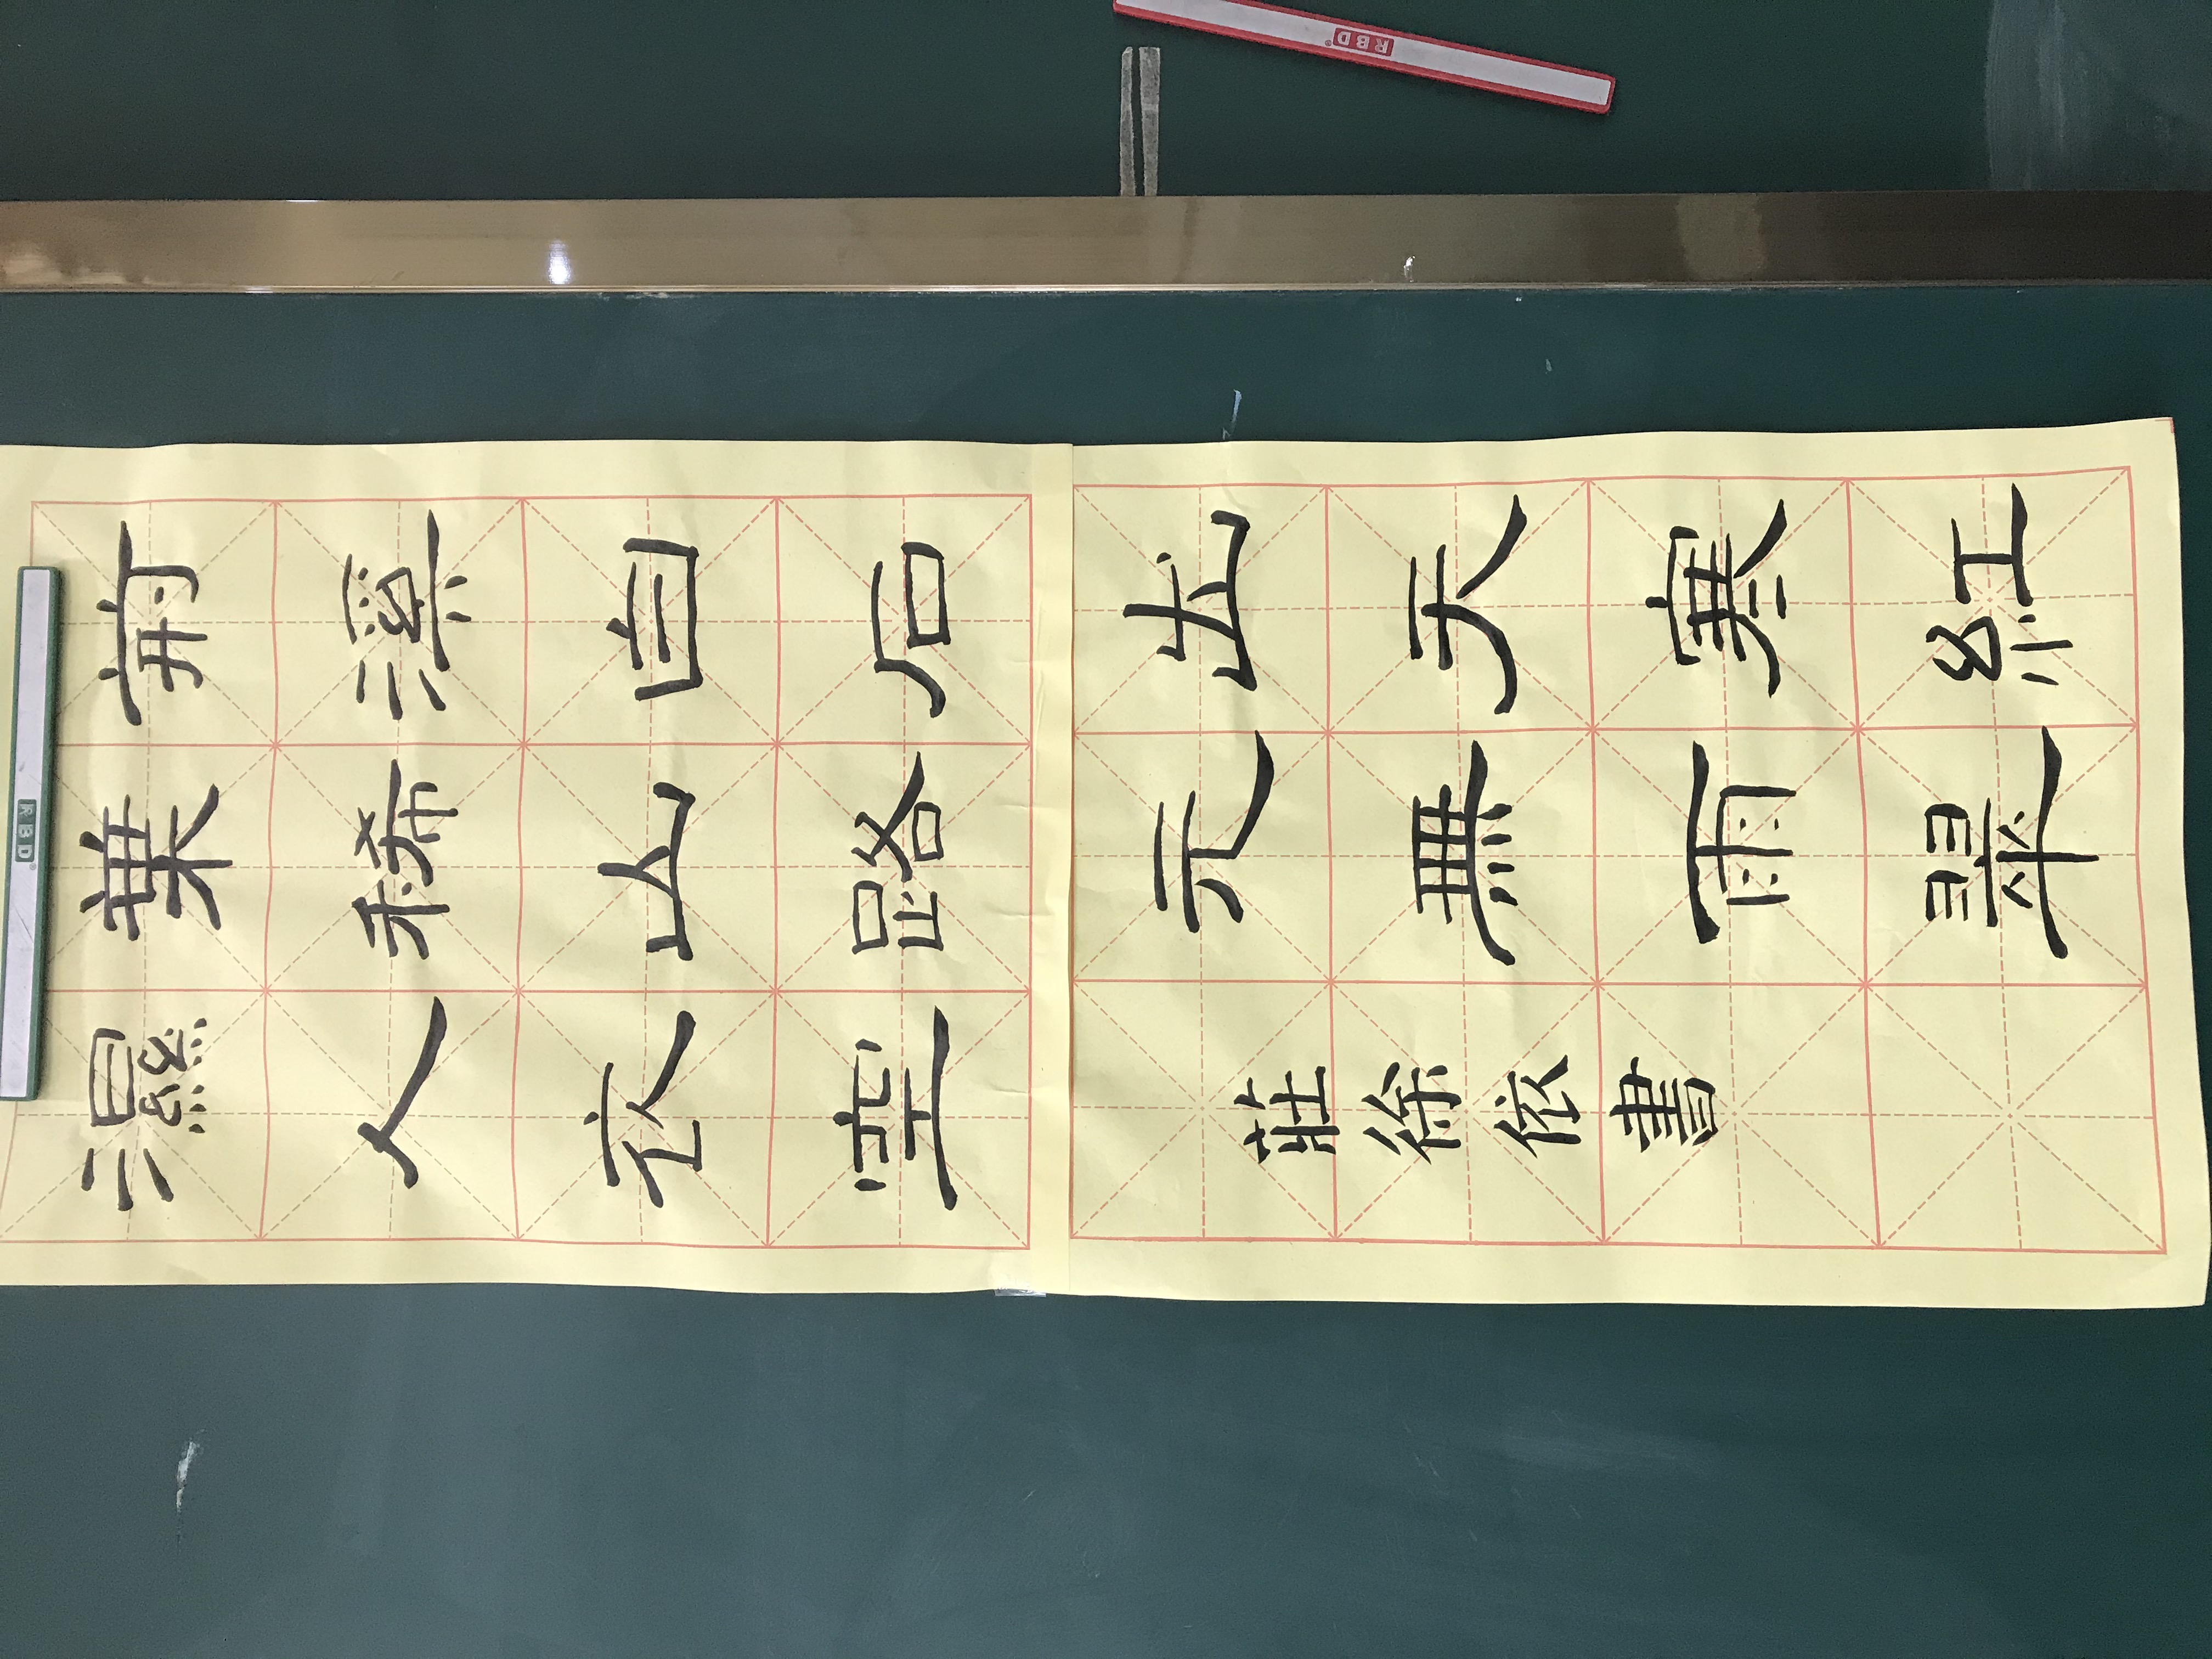 荊溪白石出天寒紅
葉稀山路元無雨翠
濕人衣空
莊徐依書
RBD
RBD